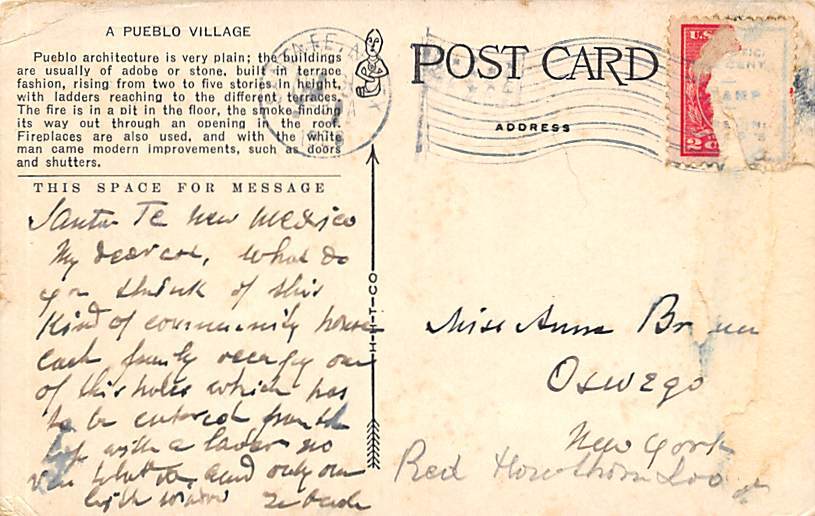 A PUEBLO VILLAGE
Pueblo architecture is very plain; the buildings
are usually of adobe or stone, built in terrace
fashion, rising from two to five stories in height,
with ladders reaching to the different terraces.
The fire is in a pit in the floor, the smoke finding
its way out through an opening in the roof.
Fireplaces are also used, and with the white
man came modern improvements, such as doors
and shutters.
THIS SPACE FOR MESSAGE
Santa Fe New Mexico
My dear, what do
you think of this
Kind of community house
each family occupy one
of this holes which has
to be entered from the
top with a lader no
and only one
light window
H-H-T-CO
POST CARD
ADDRESS
U.S.
2
Miss Anna
Oswego
New York
Red Hawthorn